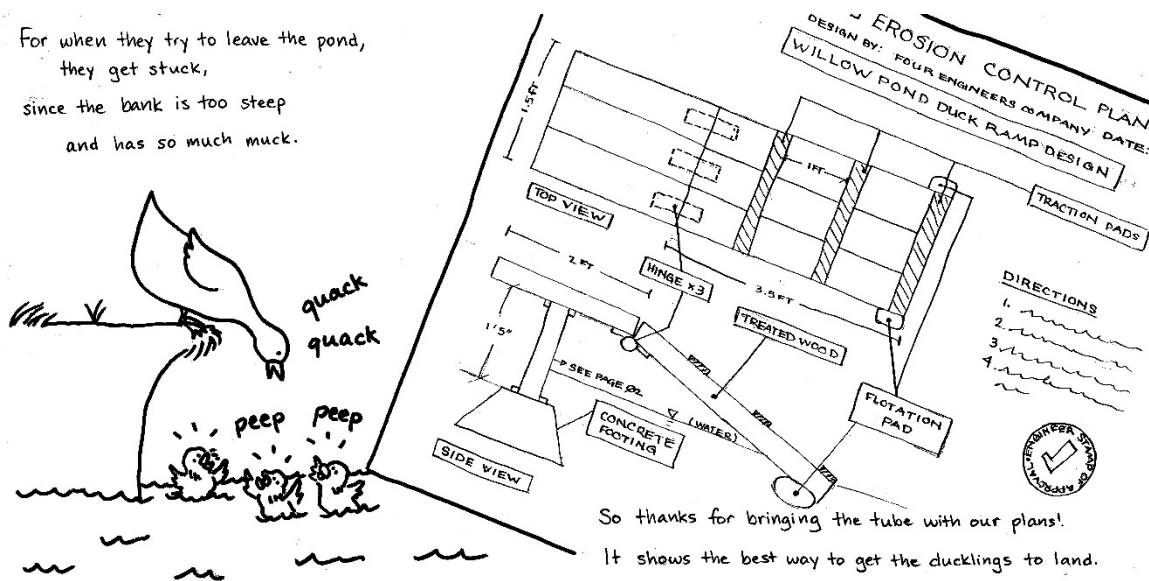 For when they try to leave the pond,
they get stuck,
since the bank is too steep
and has so much muck.
quack
quack
peep
peep
EROSION CONTROL PLAN
DESIGN BY: FOUR ENGINEERS COMPANY DATE:
WILLOW POND DUCK RAMP DESIGN
1.5 FT
1 FT
TOP VIEW
TRACTION PADS
2 FT
HINGE x3
3.5 FT
TREATED WOOD
1'5"
SEE PAGE 02
(WATER)
CONCRETE
FOOTING
FLOTATION
PAD
SIDE VIEW
DIRECTIONS
1.
2.
3.
4.
ENGINEER STAMP OF APPROVAL
So thanks for bringing the tube with our plans!
It shows the best way to get the ducklings to land.